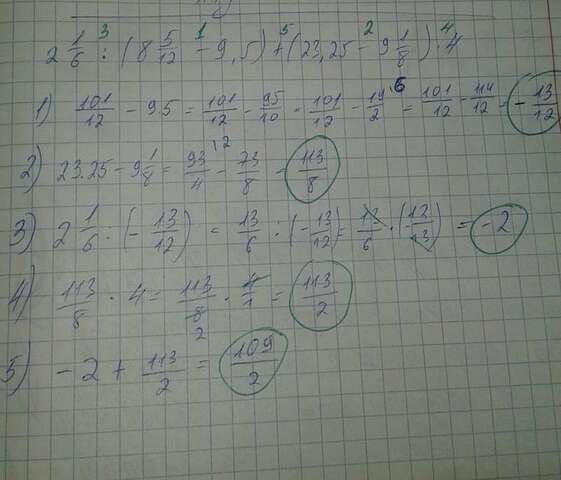 2 1/6 : (8 5/12 - 9,5) + (23,25 - 9 1/8) · 4
1) 101/12 - 9.5 = 101/12 - 95/10 = 101/12 - 19/2 ·6 = 101/12 - 114/12 = -13/12
2) 23.25 - 9 1/8 = 93/4 ·2 - 73/8 = 113/8
3) 2 1/6 : (-13/12) = 13/6 : (-13/12) = 13/6 · (-12/13) = -2
4) 113/8 · 4 = 113/8 2 · 4/1 = 113/2
5) -2 + 113/2 = 109/2